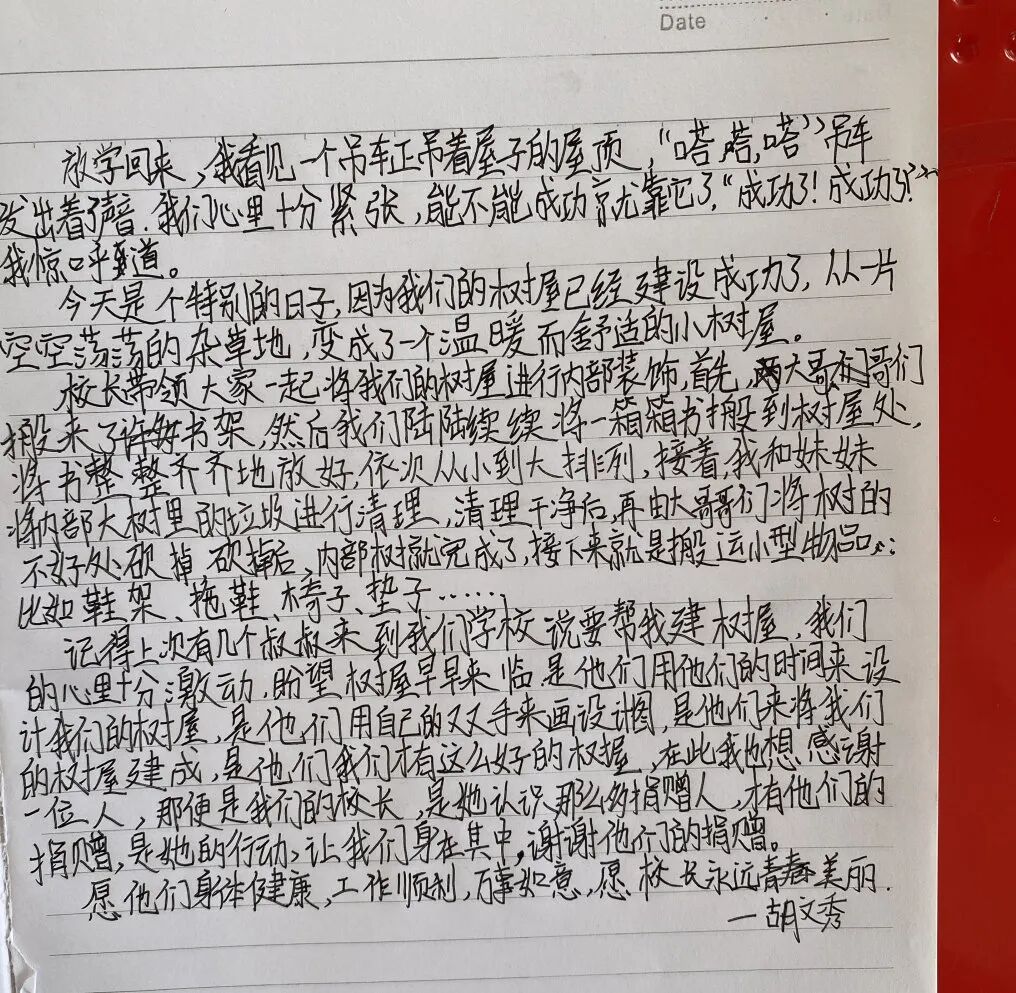 Date
放学回来,我看见一个吊车正吊着屋子的屋顶,“嗒,嗒,嗒”吊车
发出着了声音.我们心里十分紧张,能不能成功就尤靠它了,“成功了!成功了!”
我惊呼到道。
今天是个特别的日子,因为我们的树屋已经建设成功了,从一片
空空荡荡的杂草地,变成了一个温暖而舒适的小树屋。
校长带领大家一起将我们的树屋进行内部装饰,首先,大哥哥们
搬来了许多书架,然后我们陆陆续续将一箱箱书搬到树屋处,
将书整整齐齐地放好,依次从小到大排列,接着,我和妹妹
将内部大树里的垃圾进行清理,清理干净后,再由大哥哥们将树的
不好处砍掉,砍掉后,内部树就完成了,接下来就是搬运小型物品:
比如鞋架、拖鞋、椅子、垫子……
记得上次有几个叔叔来到我们学校说要帮我建树屋,我们
的心里十分激动,盼望树屋早早来临,是他们用他们的时间来设
计我们的树屋,是他们用自己的双手来画设计图,是他们来将我们
的树屋建成,是他们我们才有这么好的树屋,在此我也想感谢
一位人,那便是我们的校长,是她认识那么多捐赠人,才有他们的
捐赠,是她的行动,让我们身在其中,谢谢他们的捐赠。
愿他们身体健康,工作顺利,万事如意,愿校长永远青春美丽.
—胡文秀